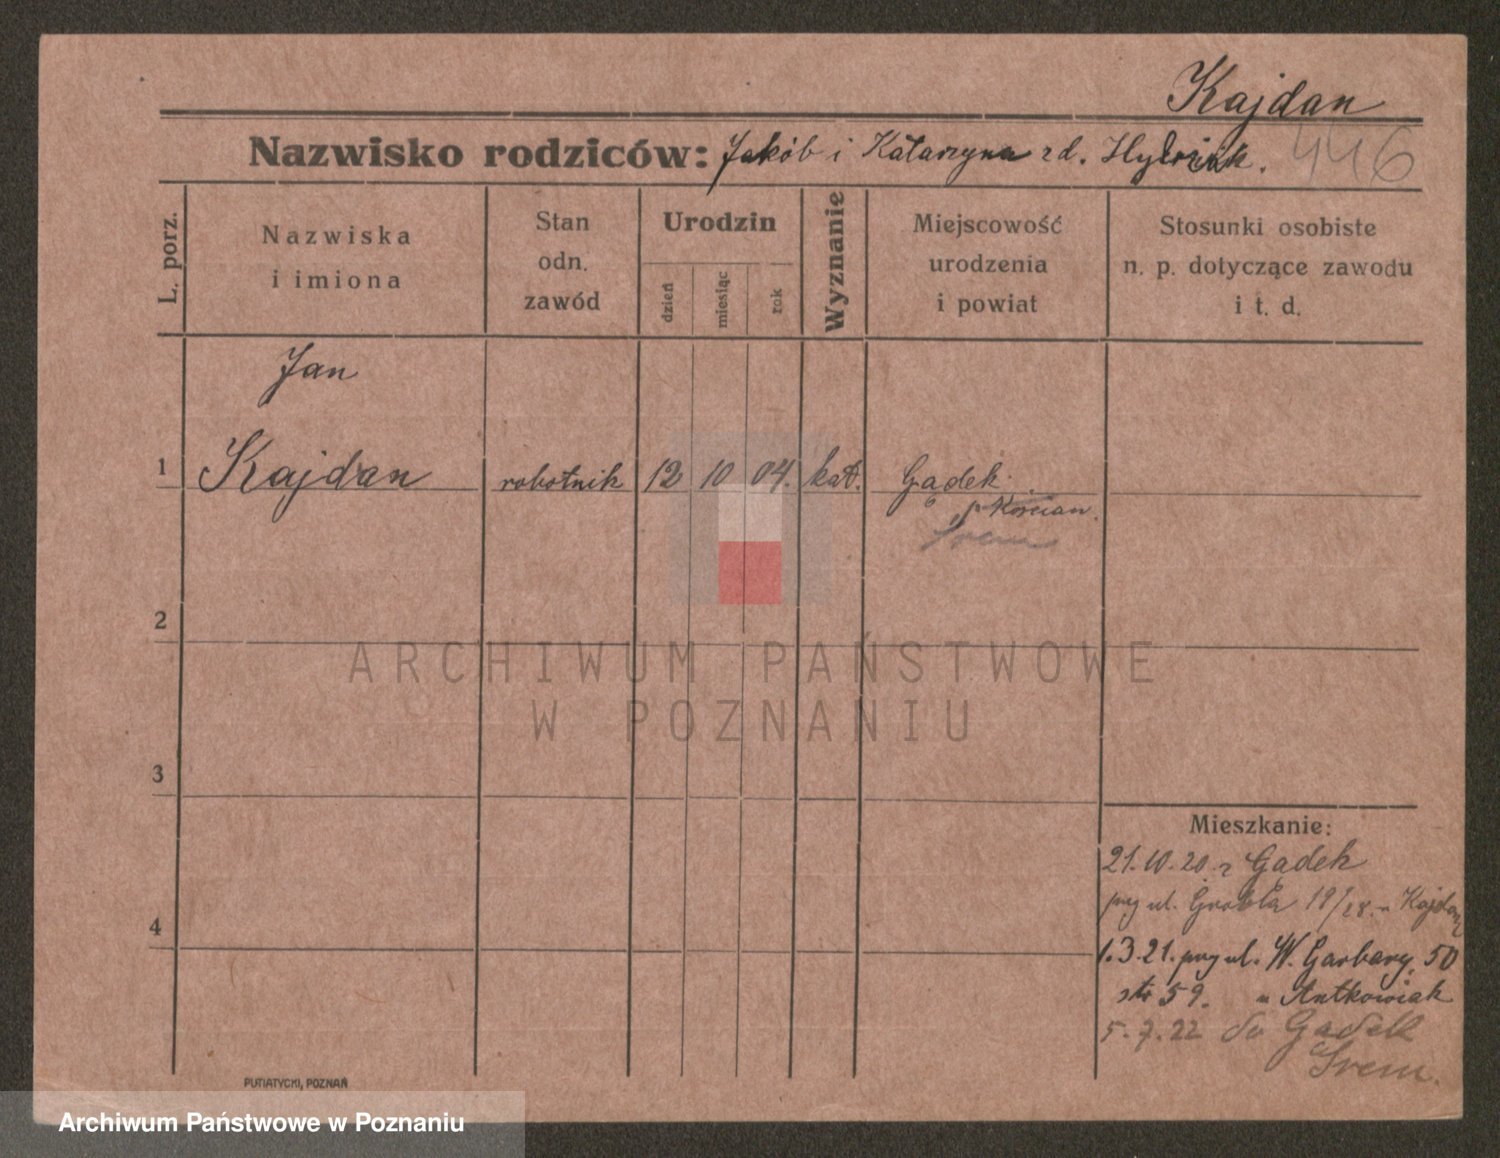 Kajdan
Nazwisko rodziców: Jakób i Katarzyna zd. 446
L. porz.
Nazwiska
i imiona
Stan
odn.
zawód
Urodzin
dzień
miesiąc
rok
Wyznanie
Miejscowość
urodzenia
i powiat
Stosunki osobiste
n. p. dotyczące zawodu
i t. d.
Jan
1 Kajdan robotnik 12 10 04. kat. Gądek
p Kościan.
Śrem
2
ARCHIWUM PAŃSTWOWE
W POZNANIU
3
Mieszkanie:
21.10.20. z Gądek
przy ul. Grobla 19/28. u Kajdan
4
1.3.21. przy ul. W. Garbary, 50
str 59. u Antkowiak
5.7.22 do Gądek
Śrem.
PUTIATYCKI, POZNAŃ
Archiwum Państwowe w Poznaniu